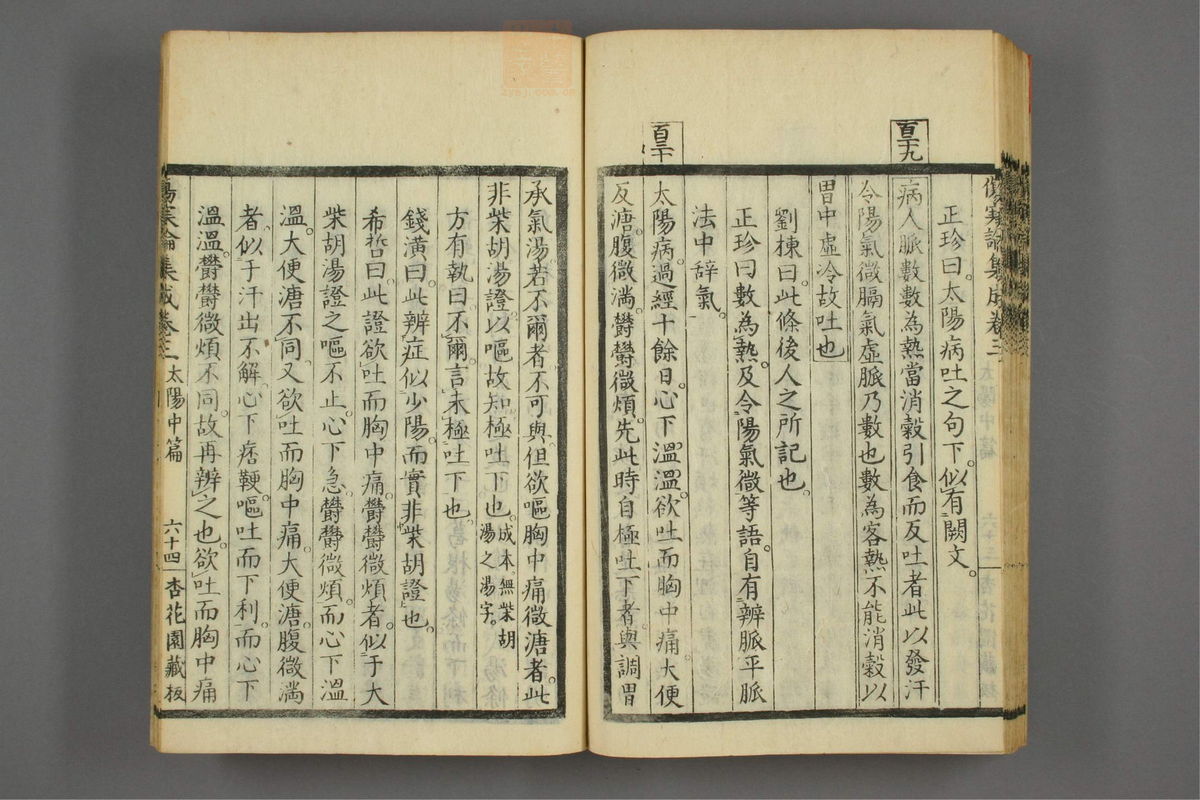 傷寒論集成卷三
百二十九
正珍曰太陽病吐之句下似有闕文
病人脈數數為熱當消穀引食而反吐者此以發汗
令陽氣微膈氣虛脈乃數也數為客熱不能消穀以
胃中虛冷故吐也
劉棟曰此條後人之所記也
正珍曰數為熱及令陽氣微等語自有辨脈平脈
法中辞氣
百三十
太陽病過經十餘日心下溫溫欲吐而胸中痛大便
反溏腹微滿鬱鬱微煩先此時自極吐下者與調胃
承氣湯若不爾者不可與但欲嘔胸中痛微溏者此
非柴胡湯證以嘔故知極吐下也成本無柴胡
湯之湯字
方有執曰不爾言未極吐下也
錢潢曰此辨症似少陽而實非柴胡證也
希哲曰此證欲吐而胸中痛鬱鬱微煩者似于大
柴胡湯證之嘔不止心下急鬱鬱微煩而心下溫
溫大便溏不同又欲吐而胸中痛大便溏腹微滿
者似于汗出不解心下痞鞕嘔吐而下利而心下
溫溫鬱鬱微煩不同故再辨之也欲吐而胸中痛
傷寒論集成卷三 太陽中篇 六十四 杏花園藏板